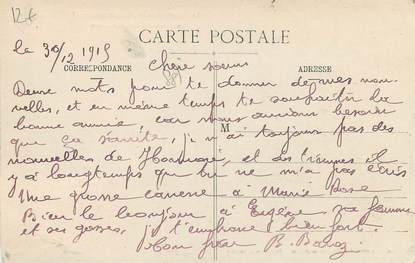 12€
CARTE POSTALE
le 30/12 1915
CORRESPONDANCE
ADRESSE
Chère soeur
Deux mots pour te donner de mes nou-
velles, et en même temps te souhaiter la
bonne année car nous aurions besoin
que ça s'arrête, je n'ai toujours pas des
M
nouvelles de et des et il
y a longtemps que tu ne m'a pas écris
Une grosse caresse à Marie Rose
Bien le bonjour à Eugène sa femme
et ses gosses, je t'embrasse bien fort.
Ton frère B.